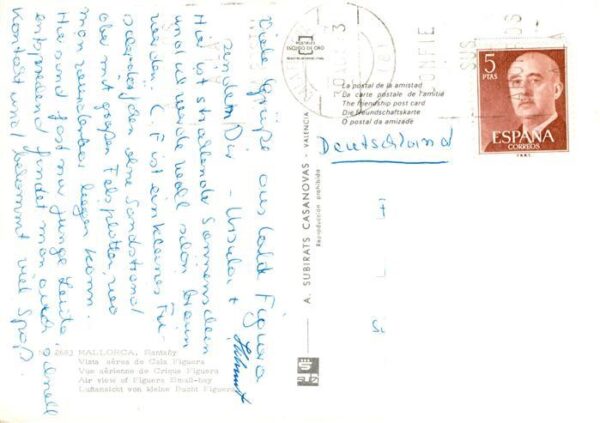 Viele Grüße aus Cala Figuera
senden Dir - Ursula +
Helmut
Hier ist strahlender Sonnenschein
und ich werde wohl schön braun
werden. C. F. ist ein kleines Fi-
scherdörfchen ohne Sandstrand
aber mit großen Felsplatten, wo
man wunderbar liegen kann.
Hier sind fast nur junge Leute,
entsprechend findet man auch schnell
Kontakt und bekommt viel Spaß.
2683 MALLORCA, Santañy
Vista aérea de Cala Figuera
Vue aérienne de Crique Figuera
Air view of Figuera Small-bay
Luftansicht von kleine Bucht Figuera
A. SUBIRATS CASANOVAS - VALENCIA
Reproducción prohibida
POSTALES
ESCUDO DE ORO
La postal de la amistad
La carte postale de l'amitié
The friendship post card
Die Freundschaftskarte
O postal da amizade
Deutschland
5
PTAS
ESPAÑA
CORREOS